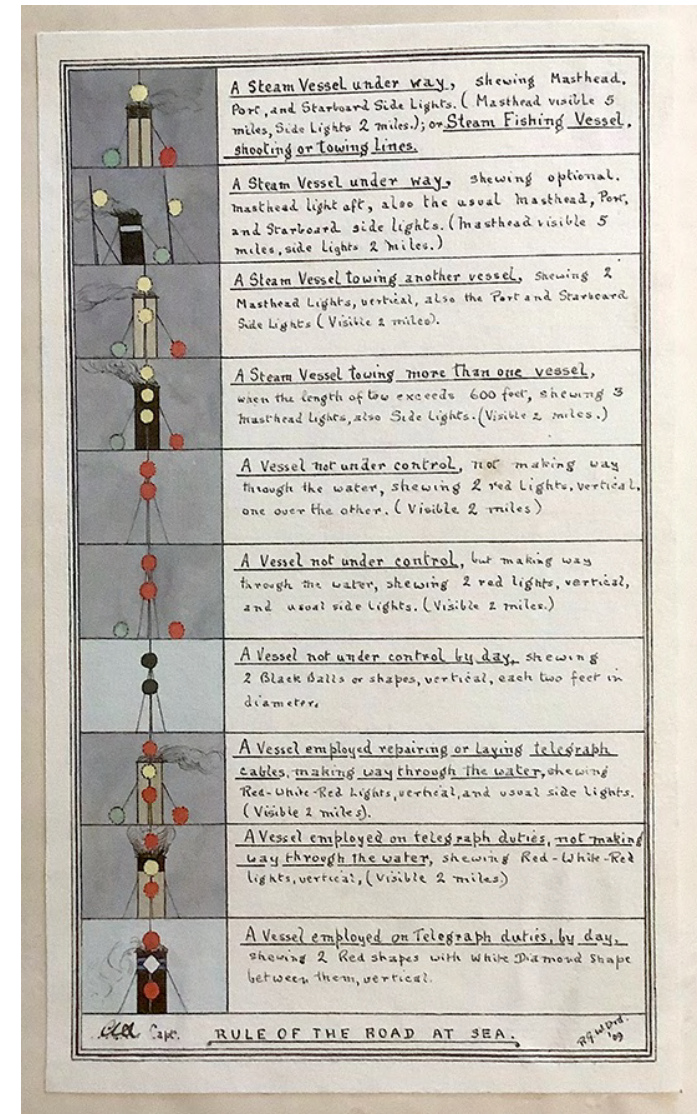 A Steam Vessel under way, shewing Masthead,
Port, and Starboard Side Lights. (Masthead visible 5
miles, Side Lights 2 miles.); or Steam Fishing Vessel,
shooting or towing lines.
A Steam Vessel under way, shewing optional.
masthead light aft, also the usual Masthead, Port,
and Starboard side lights. (Masthead visible 5
miles, side Lights 2 miles.)
A Steam Vessel towing another vessel, shewing 2
Masthead Lights, vertical, also the Port and Starboard
Side Lights (Visible 2 miles).
A Steam Vessel towing more than one vessel,
when the length of tow exceeds 600 feet, shewing 3
Masthead Lights, also Side Lights. (Visible 2 miles.)
A Vessel not under control, not making way
through the water, shewing 2 red Lights, vertical,
one over the other. (Visible 2 miles)
A Vessel not under control, but making way
through the water, shewing 2 red lights, vertical,
and usual side lights. (Visible 2 miles.)
A Vessel not under control by day, shewing
2 Black Balls or shapes, vertical, each two feet in
diameter.
A Vessel employed repairing or laying telegraph
cables, making way through the water, shewing
Red-White-Red Lights, vertical, and usual side lights.
(Visible 2 miles).
A Vessel employed on telegraph duties, not making
way through the water, shewing Red-White-Red
lights, vertical, (Visible 2 miles)
A Vessel employed on Telegraph duties, by day,
shewing 2 Red shapes with White Diamond Shape
between them, vertical.
Capt. RULE OF THE ROAD AT SEA.
'09